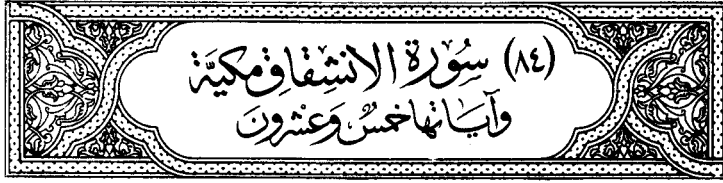 (٨٤) سُورَة الانشِقاقِ مكيَّة
وَآيَاتهَا خَمسٌ وَعشرُونَ